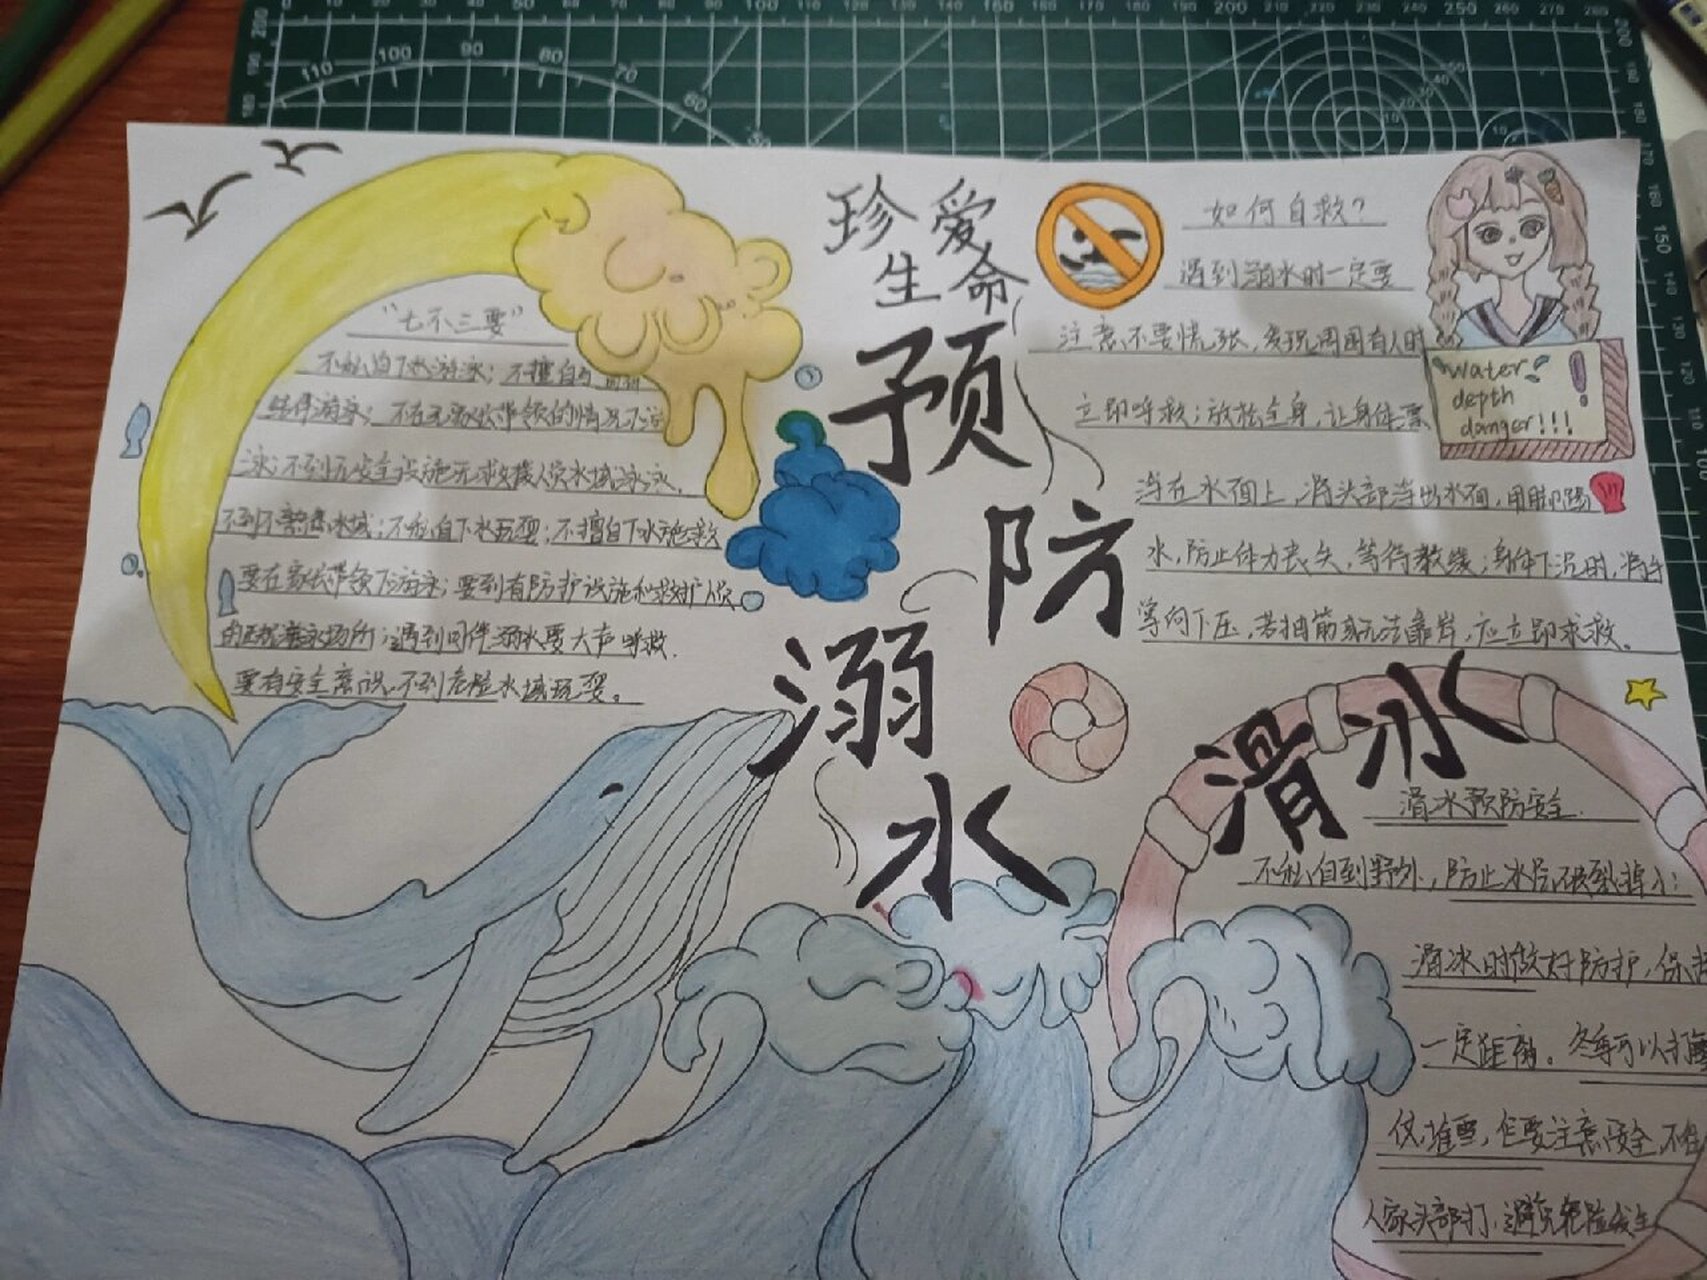 珍爱
生命
预
防
溺
水
"七不三要"
不私自下水游泳；不擅自与
结伴游泳；不在无家长带领的情况下游
泳；不到无安全设施无救援人员水域游泳，
不到不熟悉水域；不私自下水玩耍；不擅自下水施救
要在家长带领下游泳；要到有防护设施和救护人员
的正规游泳场所；遇到同伴溺水要大声呼救.
要有安全意识，不到危险水域玩耍。
如何自救？
遇到溺水时一定要
注意不要慌张，发现周围有人时
立即呼救；放松全身，让身体漂
浮在水面上，将头部浮出水面，用脚踢
水，防止体力丧失，等待救援；身体下沉时，将手
掌向下压，若抽筋无法靠岸，应立即求救。
water
depth
danger!!!
滑冰
滑冰预防安全
不私自到野外，防止冰层破裂掉
滑冰时做好防护，保持
一定距离。冬季可以打
仗，堆雪，但要注意安全，不
人家头部打，避免危险发生